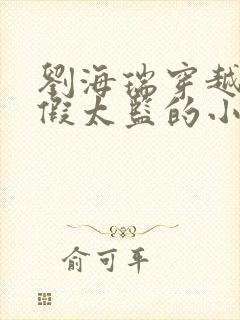 劉海瑞穿越
假太監的小
俞可平